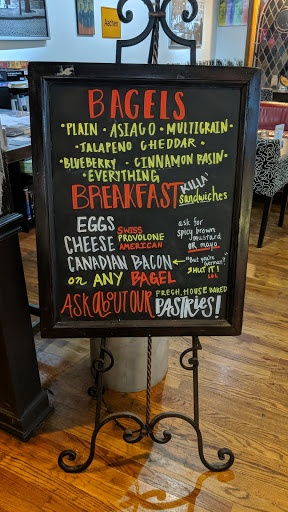 Aachen
BAGELS
• PLAIN • ASIAGO • MULTIGRAIN •
JALAPENO CHEDDAR •
• BLUEBERRY • CINNAMON RAISIN •
• EVERYTHING
BREAKFAST KILLA' Sandwiches
EGGS
CHEESE SWISS PROVOLONE AMERICAN
ask for spicy brown mustard OR mayo.
CANADIAN BACON ← "But you're German?" SHUT IT! LOL
on ANY BAGEL
ASK ABOUT OUR FRESH, HOUSE BAKED PASTRIES!